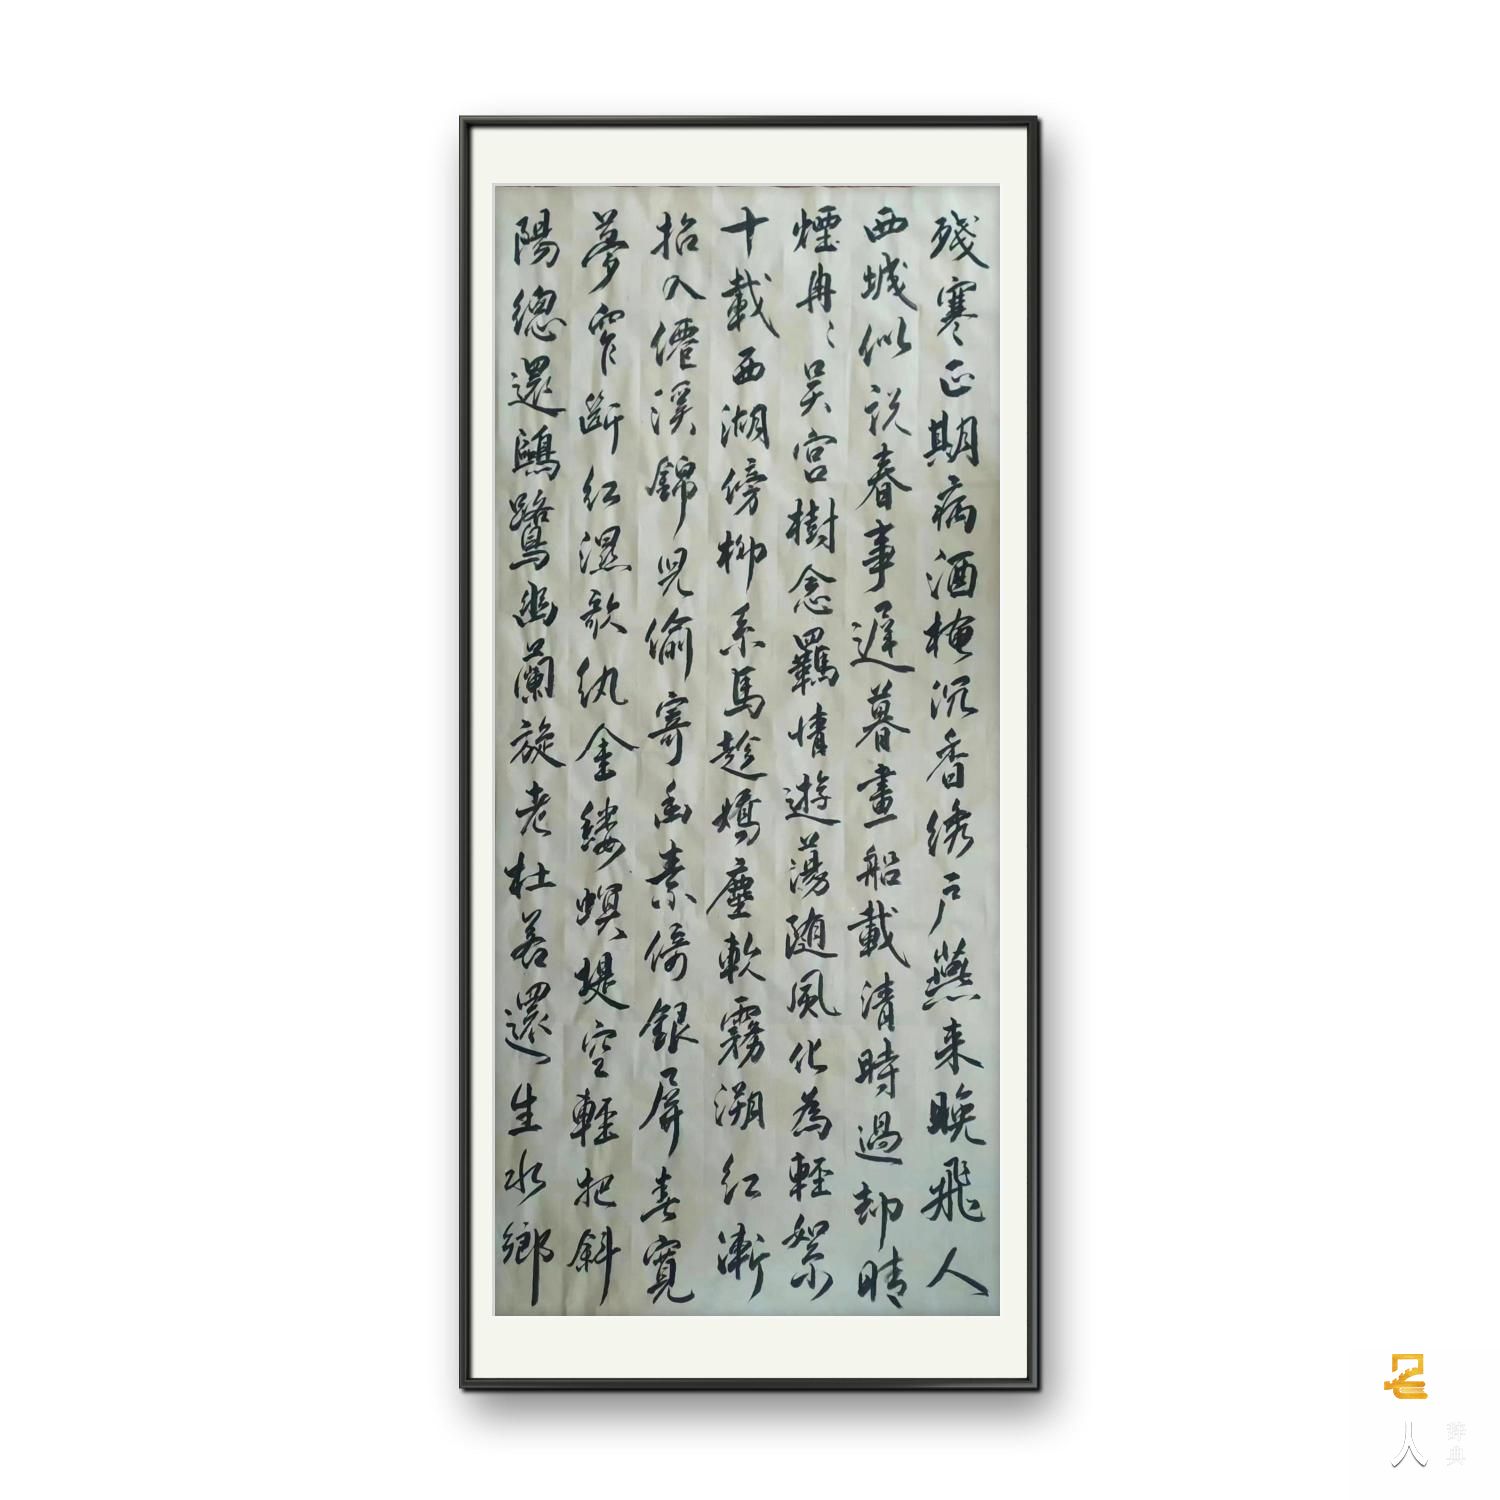 殘寒正期病酒掩沉香绣户燕来晚飛人
西城似説春事遲暮畫船載清時過却晴
煙冉〻吴宫樹念羈情遊蕩随風化為輕絮
十載西湖傍柳系馬趂嬌塵軟霧溯紅漸
招入僊溪錦兒偷寄幽素倚銀屏春寬
夢窄斷紅濕歌紈金縷暝堤空輕把斜
陽總還鷗鷺幽蘭旋老杜若還生水鄉
人
辞典